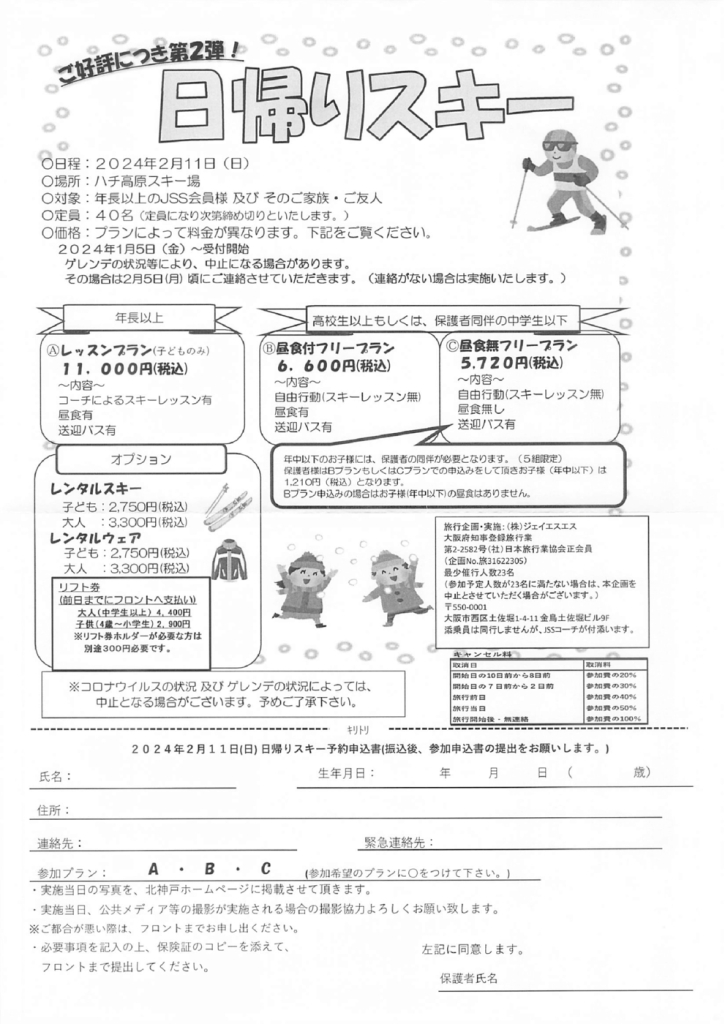 ご好評につき第2弾！
日帰りスキー
〇日程：２０２４年２月１１日（日）
〇場所：ハチ高原スキー場
〇対象：年長以上のJSS会員様 及び そのご家族・ご友人
〇定員：４０名（定員になり次第締め切りといたします。）
〇価格：プランによって料金が異なります。下記をご覧ください。
２０２４年１月５日（金）～受付開始
ゲレンデの状況等により、中止になる場合があります。
その場合は２月５日(月) 頃にご連絡させていただきます。（連絡がない場合は実施いたします。）
年長以上
Ⓐレッスンプラン(子どものみ)
１１，０００円(税込)
～内容～
コーチによるスキーレッスン有
昼食有
送迎バス有
高校生以上もしくは、保護者同伴の中学生以下
Ⓑ昼食付フリープラン
６，６００円(税込)
～内容～
自由行動(スキーレッスン無)
昼食有
送迎バス有
Ⓒ昼食無フリープラン
5,720円(税込)
～内容～
自由行動(スキーレッスン無)
昼食無し
送迎バス有
年中以下のお子様には、保護者の同伴が必要となります。（５組限定）
保護者様はBプランもしくはCプランでの申込みをして頂きお子様（年中以下）は
1,210円（税込）となります。
Bプラン申込みの場合はお子様(年中以下)の昼食はありません。
オプション
レンタルスキー
子ども：2,750円(税込)
大人　：3,300円(税込)
レンタルウェア
子ども：2,750円(税込)
大人　：3,300円(税込)
リフト券
(前日までにフロントへ支払い)
大人(中学生以上) 4,400円
子供(4歳～小学生) 2,900円
※リフト券ホルダーが必要な方は
別途300円必要です。
旅行企画・実施：(株)ジェイエスエス
大阪府知事登録旅行業
第2-2582号(社)日本旅行業協会正会員
(企画No.旅31622305)
最少催行人数23名
(参加予定人数が23名に満たない場合は、本企画を
中止とさせていただく場合がございます。)
〒550-0001
大阪市西区土佐堀1-4-11 金鳥土佐堀ビル9F
添乗員は同行しませんが、JSSコーチが付添います。
キャンセル料
取消日 取消料
開始日の10日前から8日前 参加費の20%
開始日の７日前から２日前 参加費の30%
旅行前日 参加費の40%
旅行当日 参加費の50%
旅行開始後・無連絡 参加費の100%
※コロナウイルスの状況 及び ゲレンデの状況によっては、
中止となる場合がございます。予めご了承下さい。
キリトリ
２０２４年２月１１日(日) 日帰りスキー予約申込書(振込後、参加申込書の提出をお願いします。)
氏名： 生年月日： 年 月 日 （ 歳）
住所：
連絡先： 緊急連絡先：
参加プラン： A ・ B ・ C (参加希望のプランに〇をつけて下さい。)
・実施当日の写真を、北神戸ホームページに掲載させて頂きます。
・実施当日、公共メディア等の撮影が実施される場合の撮影協力よろしくお願い致します。
※ご都合が悪い際は、フロントまでお申し出ください。
・必要事項を記入の上、保険証のコピーを添えて、
フロントまで提出してください。
左記に同意します。
保護者氏名